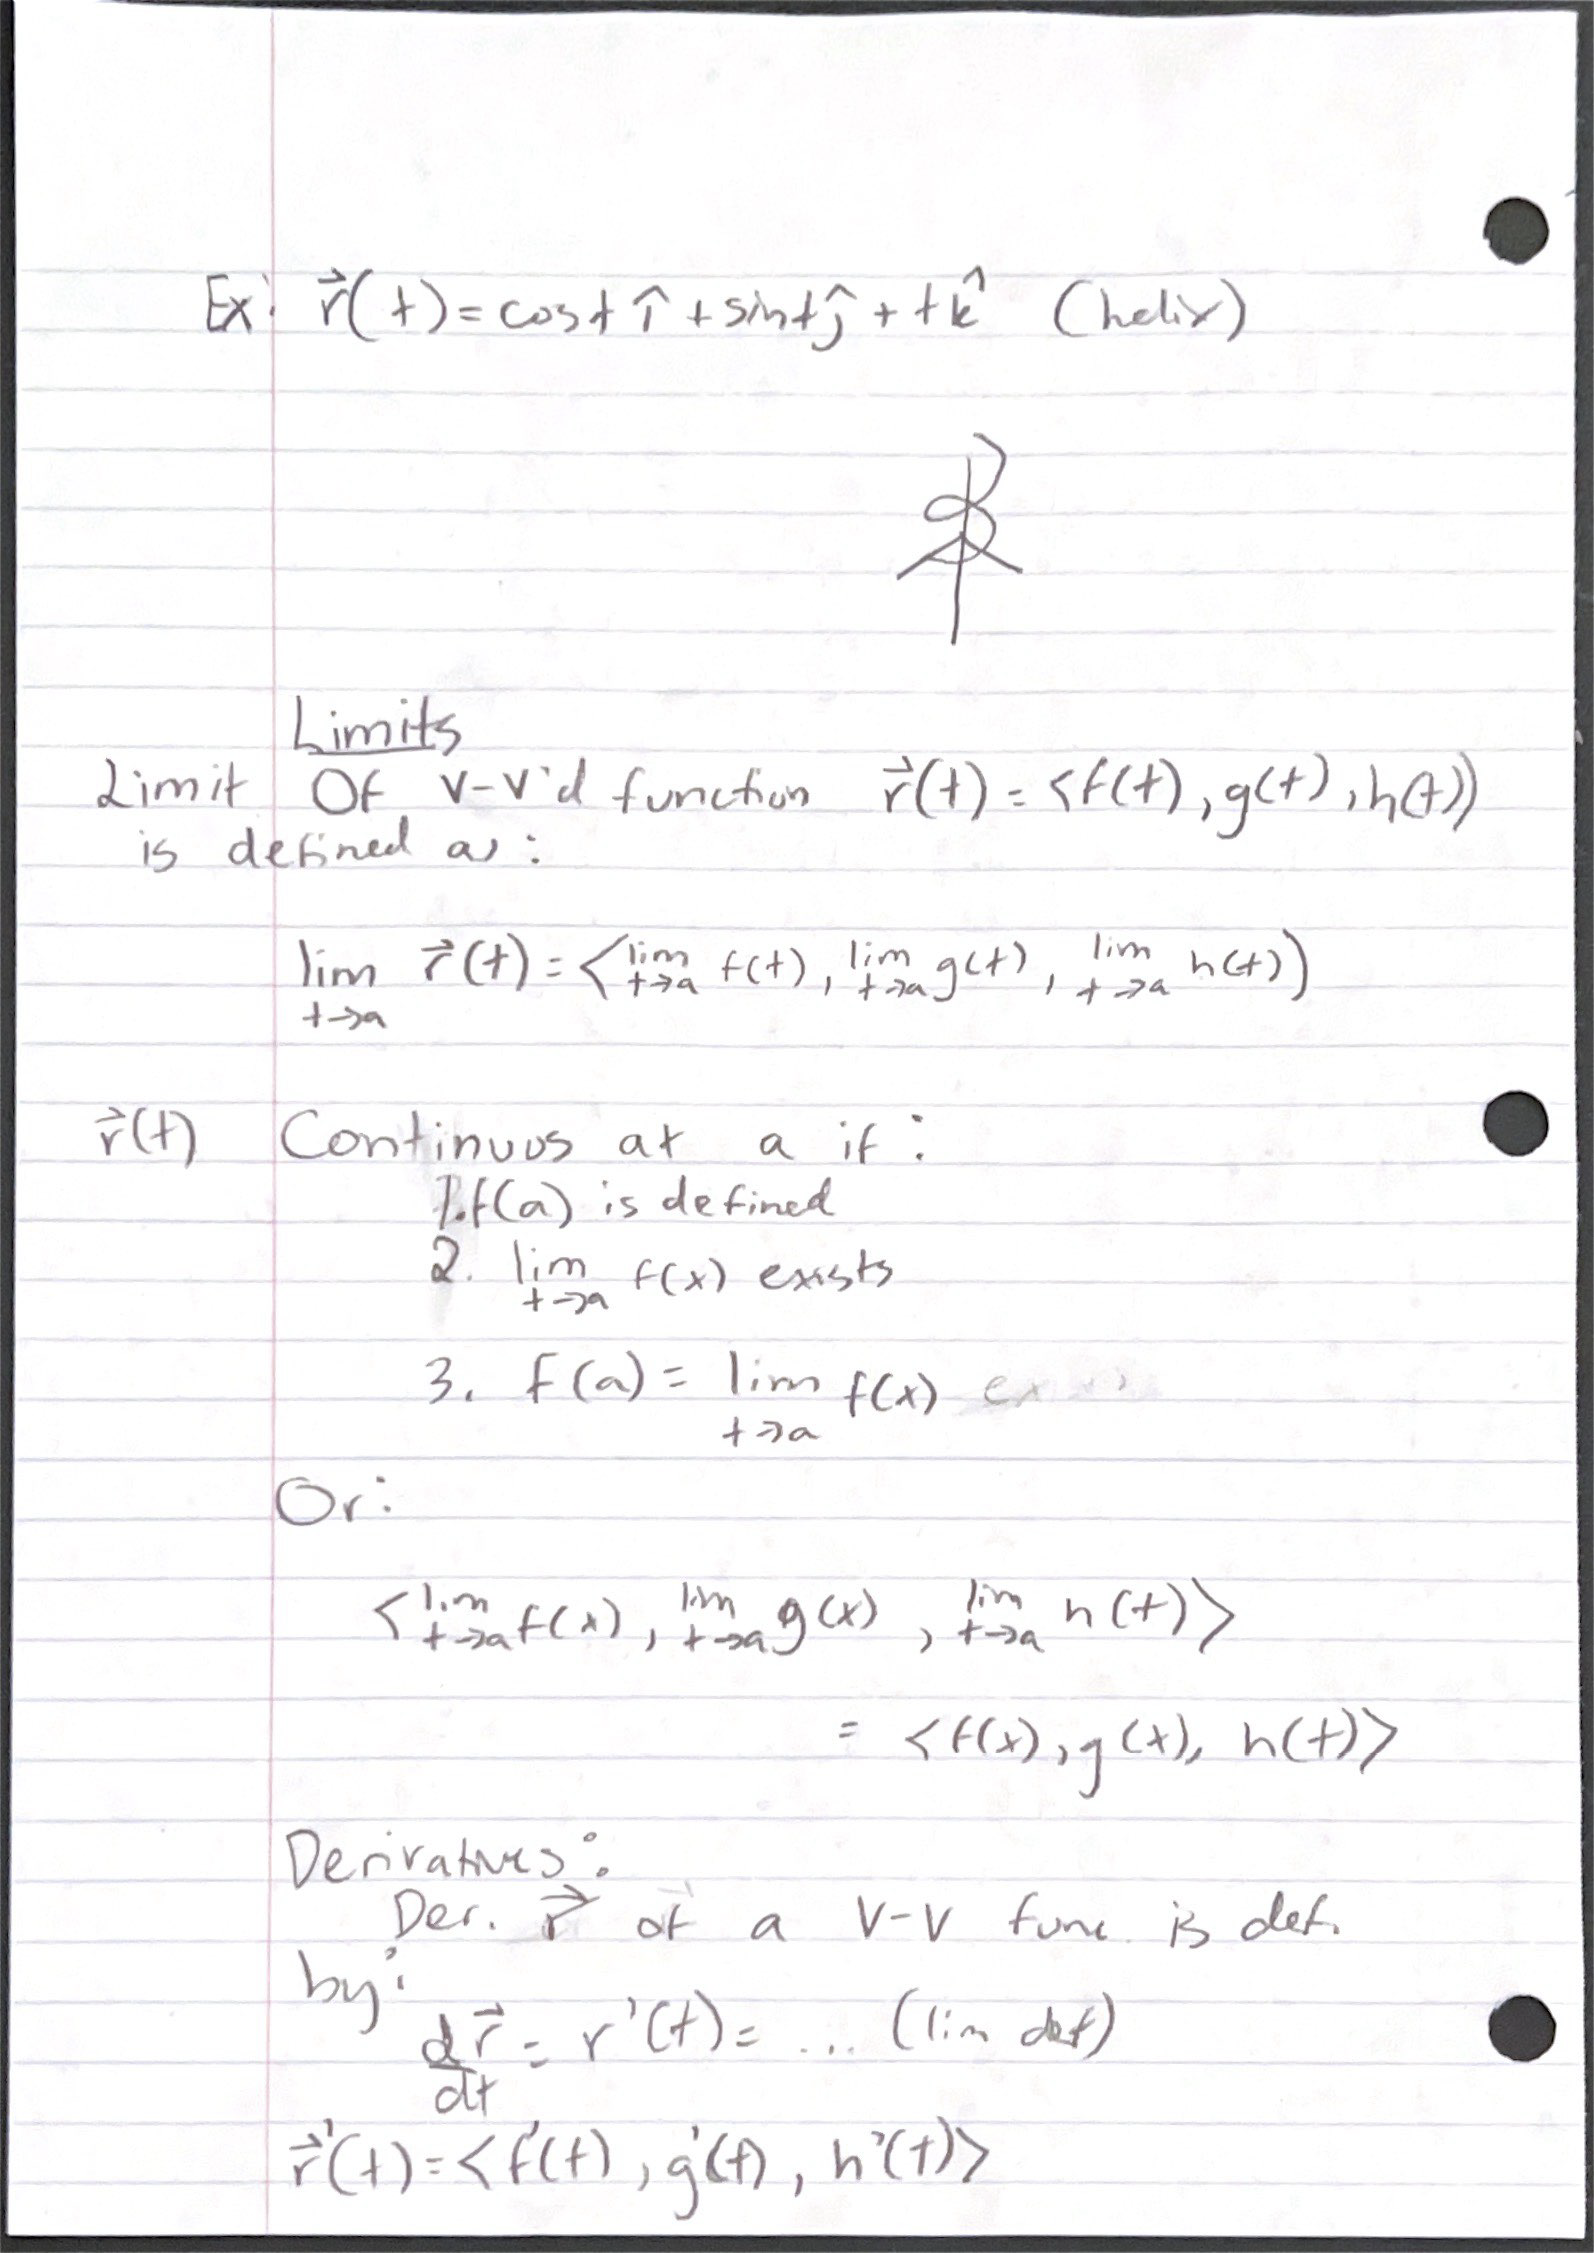 Ex: r⃗(t) = cost î + sint ĵ + t k̂ (helix)
Limits
Limit Of v-v'd function r⃗(t) = <f(t), g(t), h(t)>
is defined as:
lim t→a r⃗(t) = <lim t→a f(t), lim t→a g(t), lim t→a h(t)>
r⃗(t) Continuos at a if:
1. f(a) is defined
2. lim t→a f(x) exists
3. f(a) = lim t→a f(x)
Or:
<lim t→a f(x), lim t→a g(x), lim t→a h(t)>
= <f(x), g(x), h(t)>
Derivatives:
Der. r⃗ of a v-v func. is def.
by:
dr⃗/dt = r'(t) = ... (lim def)
r⃗'(t) = <f'(t), g'(t), h'(t)>